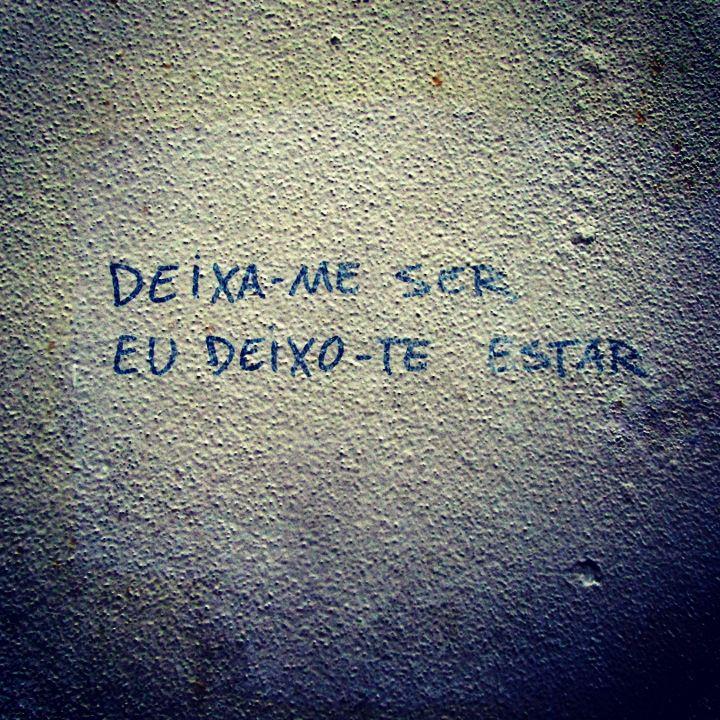 DEIXA-ME SER
EU DEIXO-TE ESTAR